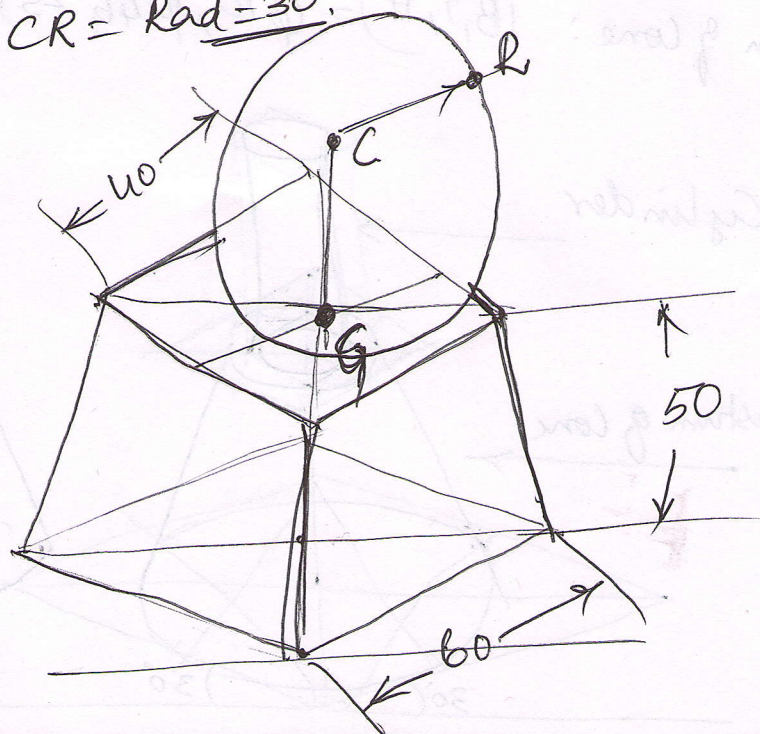 CR = Rad = 30.
R
C
40
G
50
60